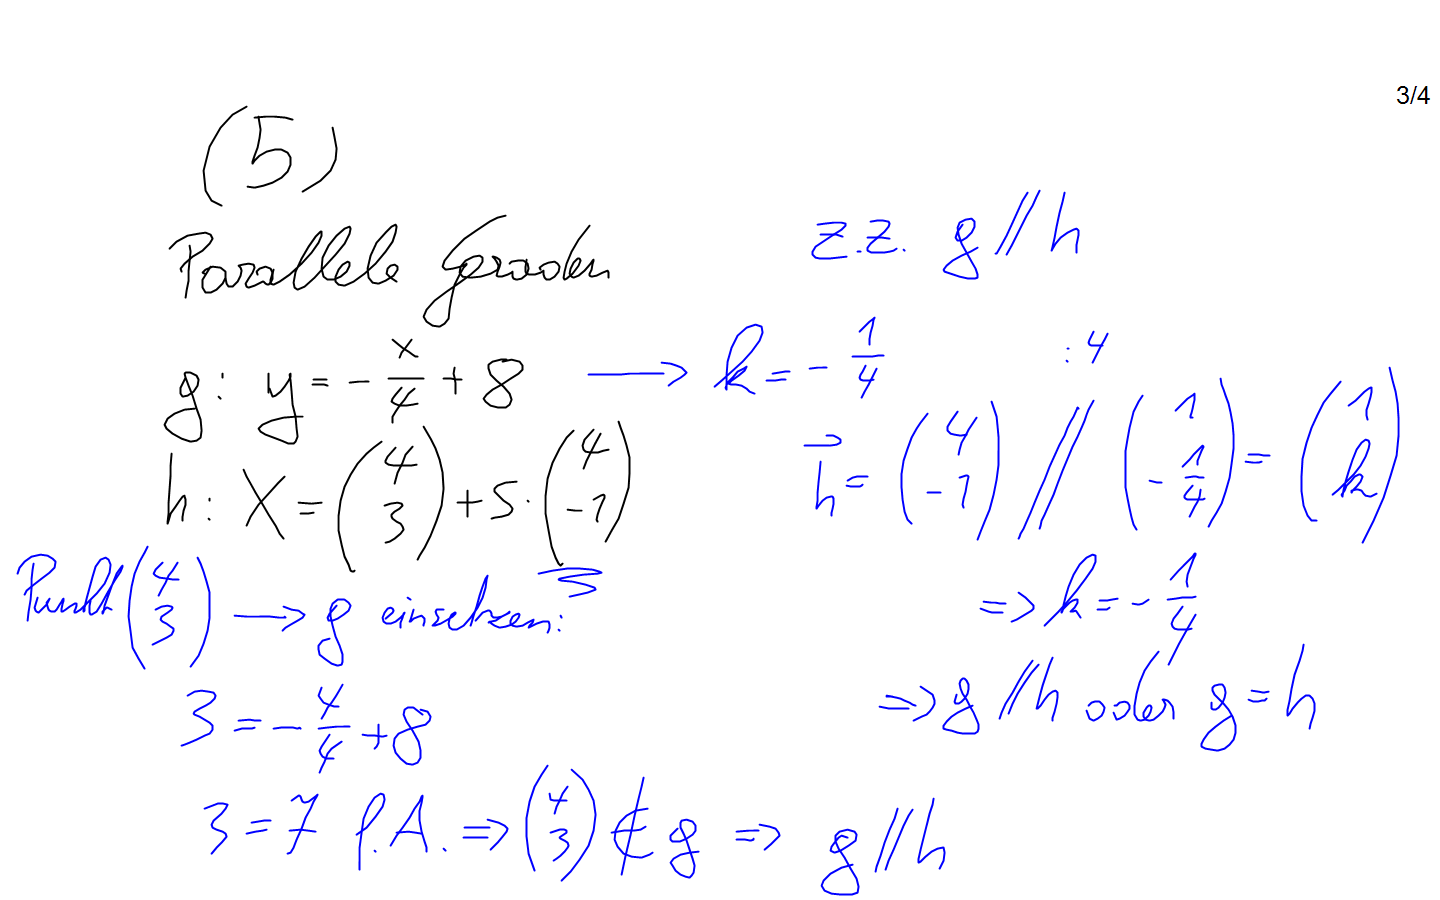 3/4
(5)
Parallele Geraden
z.z. g // h
g: y = - x/4 + 8 → k = - 1/4
:4
h: X = (4 3) + s · (4 -1)
h⃗ = (4 -1) // (1 -1/4) = (1 k)
⇒ k = - 1/4
⇒ g // h oder g = h
Punkt (4 3) → g einsetzen:
3 = - 4/4 + 8
3 = 7 f.A. ⇒ (4 3) ∉ g ⇒ g // h